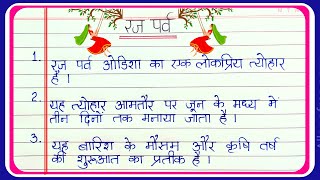 रज पर्व
1. रज पर्व ओडिशा का एक लोकप्रिय त्योहार
है ।
2. यह त्योहार आमतौर पर जून के मध्य में
तीन दिनों तक मनाया जाता है ।
3. यह बारिश के मौसम और कृषि वर्ष
की शुरूआत का प्रतीक है ।